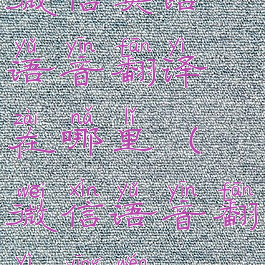 微信英语
yǔ yīn fān yì
语音翻译
zài nǎ lǐ
在哪里（
wēi xìn yǔ yīn fān
微信语音翻